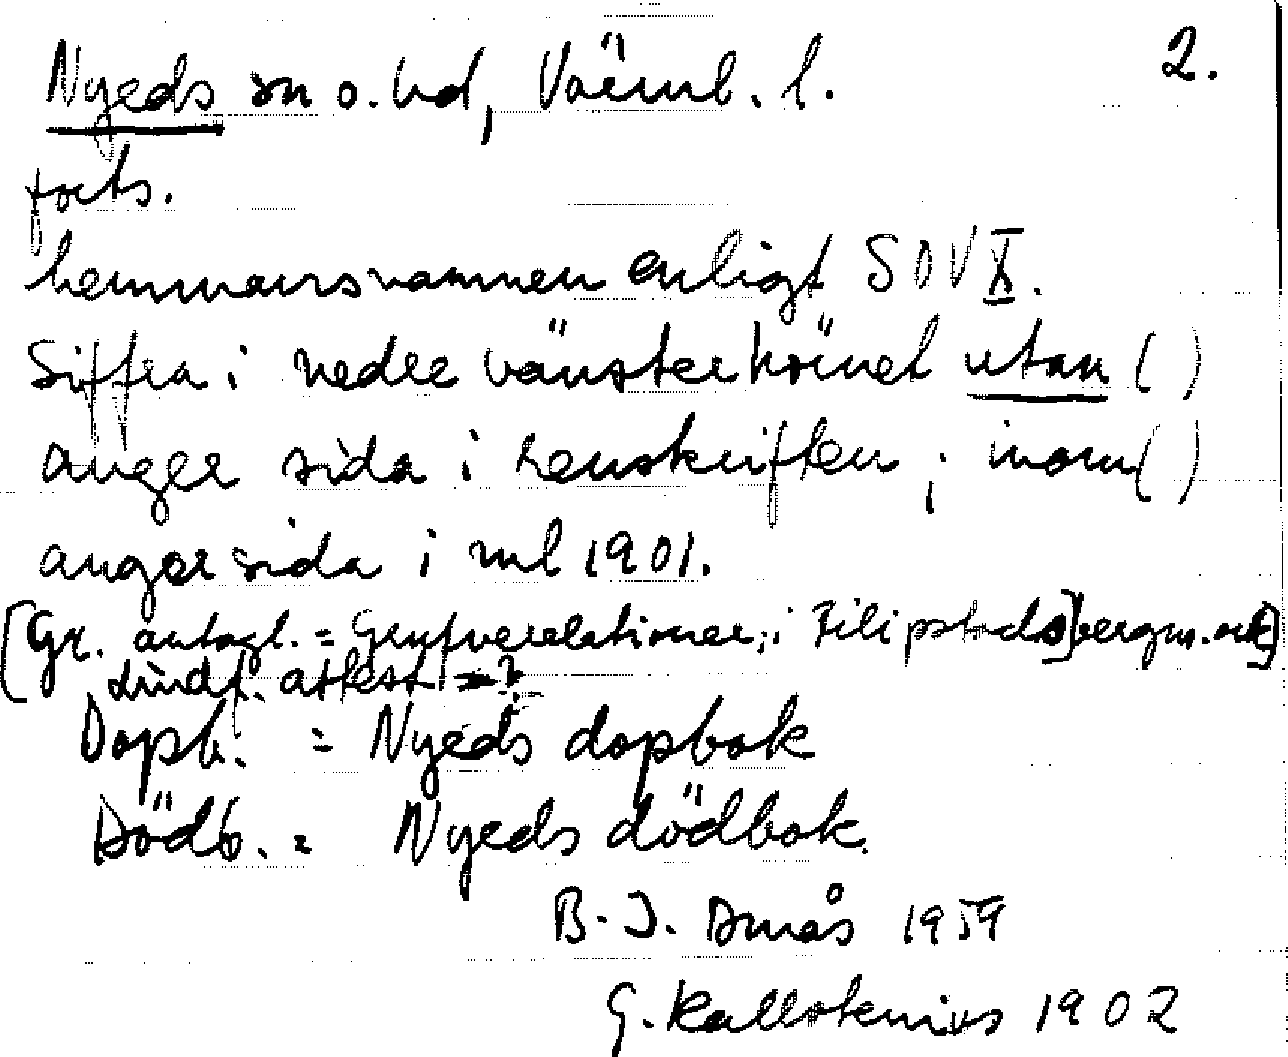 Nyeds sn o. hd, Värml. l. 2.
forts.
hemmansnamnen enligt SOV X.
Siffra i nedre vänsterhörnet utan ( )
anger sida i renskriften; inom ( )
anger sida i ml 1901.
[Gr. antagl. = Grufverelationer; i Filipstads] bergm. ark]
Lindf. attest =?
Dopb. = Nyeds dopbok
Dödb. = Nyeds dödbok.
B. J. 1959
G. Kallstenius 1902